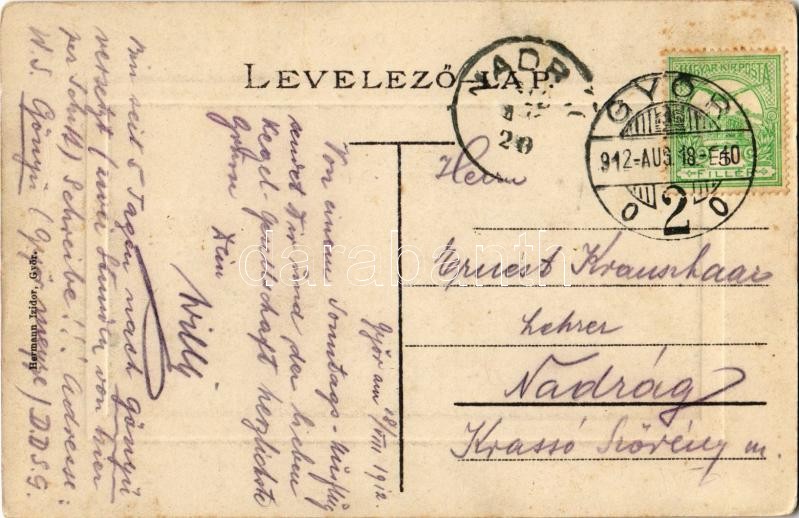 LEVELEZŐ-LAP.
NADR
20
MAGYAR KIR. POSTA
FILLÉR
GYŐR
912-AUG. 18-E40
2
Herrn
Ernest Kraushaar
Lehrer
Nadrág
Krassó Szörény m.
Győr am 18/VIII 1912.
Von einem Sonntags-Ausflug
sendet Dir und der lieben
Kegel-Gesellschaft herzlichste
Grüsse Dein
Willi
Bin seit 5 Tagen nach Gönyü
versetzt (zwei Stunden von hier
per Schiff) Schreibe!!! Adresse:
W. S. Gönyü (Győr megye) D.D.S.G.
Hermann Izidor, Győr.
darabanth